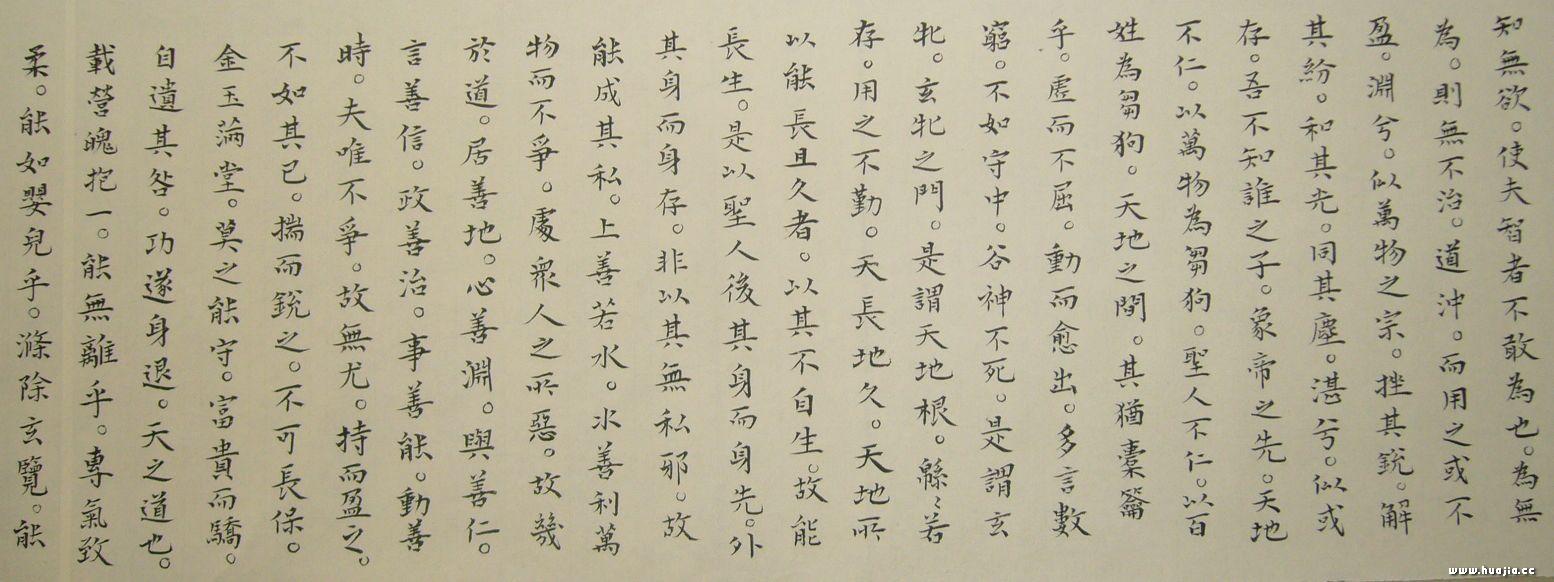 知無欲。使夫智者不敢為也。為無
為。則無不治。道沖。而用之或不
盈。淵兮。似萬物之宗。挫其銳。解
其紛。和其光。同其塵。湛兮。似或
存。吾不知誰之子。象帝之先。天地
不仁。以萬物為芻狗。聖人不仁。以百
姓為芻狗。天地之間。其猶橐籥
乎。虛而不屈。動而愈出。多言數
窮。不如守中。谷神不死。是謂玄
牝。玄牝之門。是謂天地根。緜〻若
存。用之不勤。天長地久。天地所
以能長且久者。以其不自生。故能
長生。是以聖人後其身而身先。外
其身而身存。非以其無私耶。故
能成其私。上善若水。水善利萬
物而不爭。處衆人之所惡。故幾
於道。居善地。心善淵。與善仁。
言善信。政善治。事善能。動善
時。夫唯不爭。故無尤。持而盈之。
不如其已。揣而銳之。不可長保。
金玉滿堂。莫之能守。富貴而驕。
自遺其咎。功遂身退。天之道也。
載營魄抱一。能無離乎。專氣致
柔。能如嬰兒乎。滌除玄覽。能
www.huajia.cc